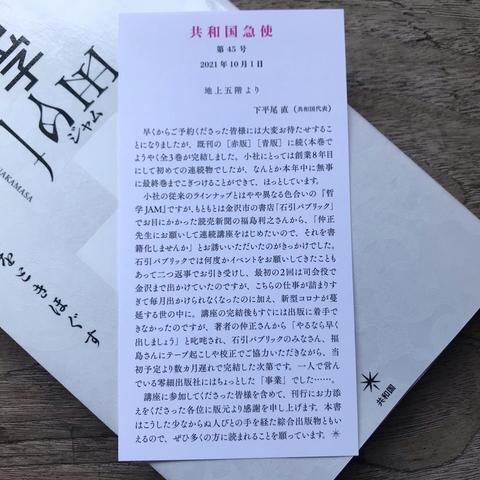 共和国急使
第45号
2021年10月1日
地上五階より
下平尾 直（共和国代表）
早くからご予約くださった皆様には大変お待たせするこ
とになりましたが、既刊の［赤版］［青版］に続く本巻で
ようやく全3巻が完結しました。小社にとっては創業8年目
にして初めての連続物でしたが、なんとか本年中に無事
に最終巻までこぎつけることができて、ほっとしています。
小社の従来のラインナップとはやや異なる色合いの『哲
学JAM』ですが、もともとは金沢市の書店「石引パブリック」
でお目にかかった読売新聞の福島利之さんから、「仲正
先生にお願いして連続講座をはじめたいので、それを書
籍化しませんか」とお誘いいただいたのがきっかけでした。
石引パブリックでは何度かイベントをお願いしてきたことも
あって二つ返事でお引き受けし、最初の2回は司会役で
金沢まで出かけていたのですが、こちらの仕事が詰まり
すぎて毎月出かけられなくなったのに加え、新型コロナが蔓
延する世の中に。講座の完結後もすぐには出版に着手で
きなかったのですが、著者の仲正さんから「やるなら早く
出しましょう」と叱咤され、石引パブリックのみなさん、福
島さんにテープ起こしや校正でご協力いただきながら、当
初予定より数ヵ月遅れで完結した次第です。一人で営ん
でいる零細出版社にはちょっとした「事業」でした……。
講座に参加してくださった皆様を含めて、刊行にお力添
えをくださった各位に版元より感謝を申し上げます。本書
はこうした少なからぬ人びとの手を経た綜合出版物ともい
えるので、ぜひ多くの方に読まれることを願っています。
ジャム
NAKAMASA
をときほぐす
共和国